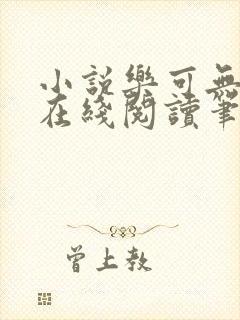 小説樂可無
在綫閱讀筆
曾上教